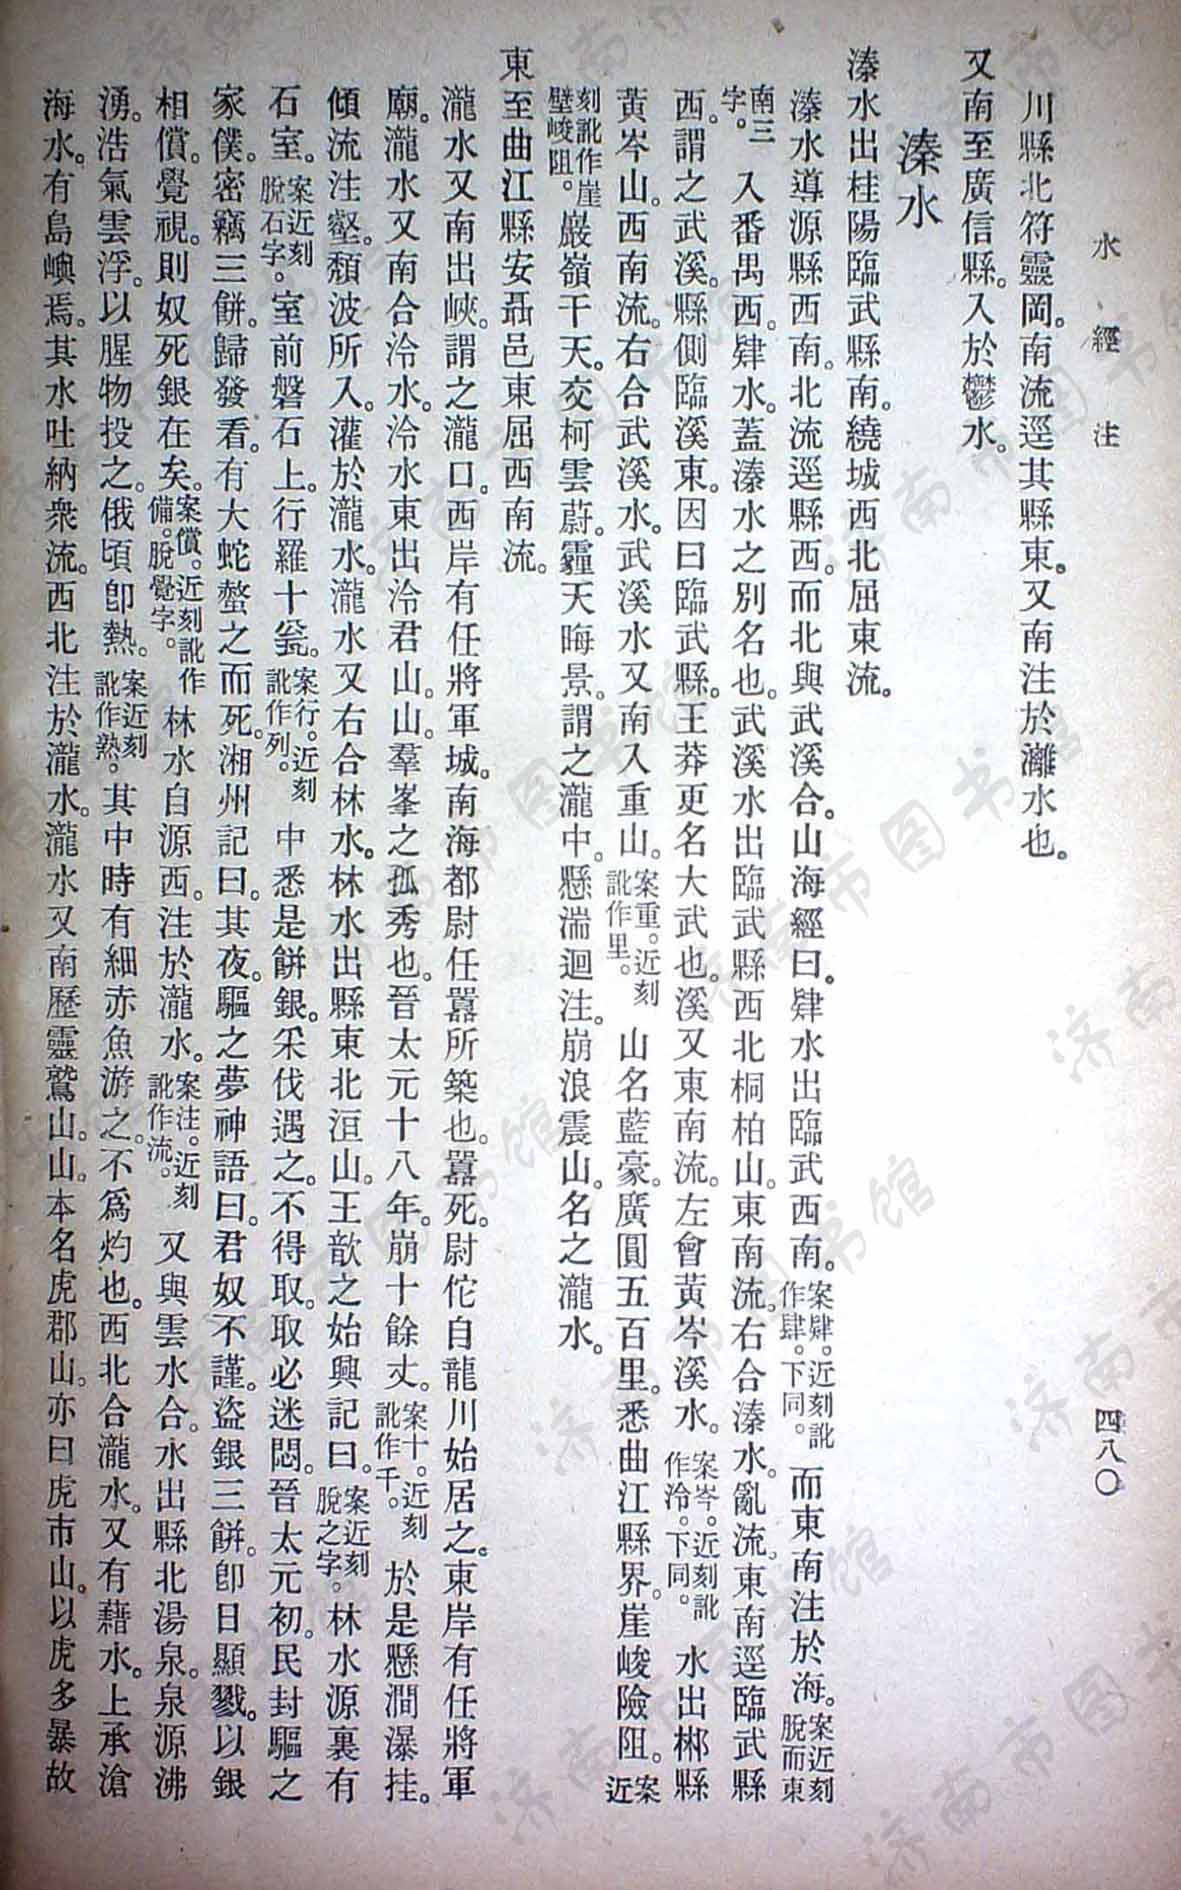 水經注
四八〇
川縣北符靈岡。南流逕其縣東。又南注於灕水也。
又南至廣信縣。入於鬱水。
溱水
溱水出桂陽臨武縣南。繞城西北屈東流。
溱水導源縣西南。北流逕縣西。而北與武溪合。山海經曰。肄水出臨武西南。案肄。近刻訛作肆。下同。而東南注於海。案近刻脫而東
南三字。入番禺西。肄水。蓋溱水之別名也。武溪水出臨武縣西北桐柏山。東南流。右合溱水。亂流。東南逕臨武縣
西。謂之武溪。縣側臨溪東。因曰臨武縣。王莽更名大武也。溪又東南流。左會黃岑溪水。案岑。近刻訛作泠。下同。水出郴縣
黃岑山。西南流。右合武溪水。武溪水又南入重山。案重。近刻訛作里。山名藍豪。廣圓五百里。悉曲江縣界。崖峻險阻。案近
刻訛作崖壁峻阻。巖嶺干天。交柯雲蔚。霾天晦景。謂之瀧中。懸湍迴注。崩浪震山。名之瀧水。
東至曲江縣安聶邑東屈西南流。
瀧水又南出峽。謂之瀧口。西岸有任將軍城。南海都尉任囂所築也。囂死。尉佗自龍川始居之。東岸有任將軍
廟。瀧水又南合泠水。泠水東出泠君山。山。羣峯之孤秀也。晉太元十八年。崩十餘丈。案十。近刻訛作千。於是懸澗瀑挂。
傾流注壑。頹波所入。灌於瀧水。瀧水又右合林水。林水出縣東北洹山。王歆之始興記曰。案近刻脫之字。林水源裏有
石室。案近刻脫石字。室前磐石上。行羅十瓮。案行。近刻訛作列。中悉是餅銀。采伐遇之。不得取。取必迷悶。晉太元初。民封驅之
家僕。密竊三餅。歸發看。有大蛇螫之而死。湘州記曰。其夜。驅之夢神語曰。君奴不謹。盜銀三餅。卽日顯戮。以銀
相償。覺視。則奴死銀在矣。案償。近刻訛作備。脫覺字。林水自源西。注於瀧水。案注。近刻訛作流。又與雲水合。水出縣北湯泉。泉源沸
湧。浩氣雲浮。以腥物投之。俄頃卽熱。案近刻訛作熟。其中時有細赤魚游之。不爲灼也。西北合瀧水。又有藉水。上承滄
海水。有島嶼焉。其水吐納衆流。西北注於瀧水。瀧水又南歷靈鷲山。山。本名虎郡山。亦曰虎市山。以虎多暴故